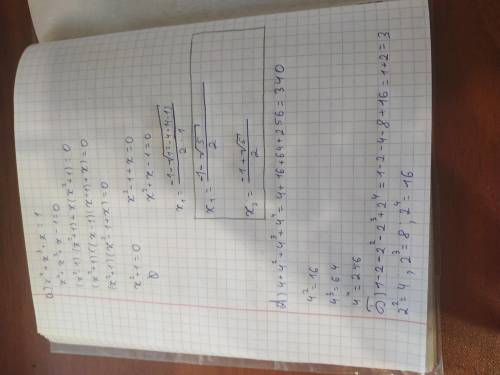 x⁴+x³+x=1
x⁴+x³+x-1=0
(x²-1)(x²+1)+x(x²+1)=0
(x²+1)((x-1)(x+1)+x)=0
(x²+1)(x²-1+x)=0
x²+1=0
x²-1+x=0
x²+x-1=0
x₁=
x₁=-1-√5/2
x₂=-1+√5/2
4+4²+4³+4⁴=4+16+64+256=340
4²=16
4³=64
4⁴=256
б) 1-2-2²-2³+2⁴=1-2-4-8+16=1+2=3
2²=4, 2³=8, 2⁴=16